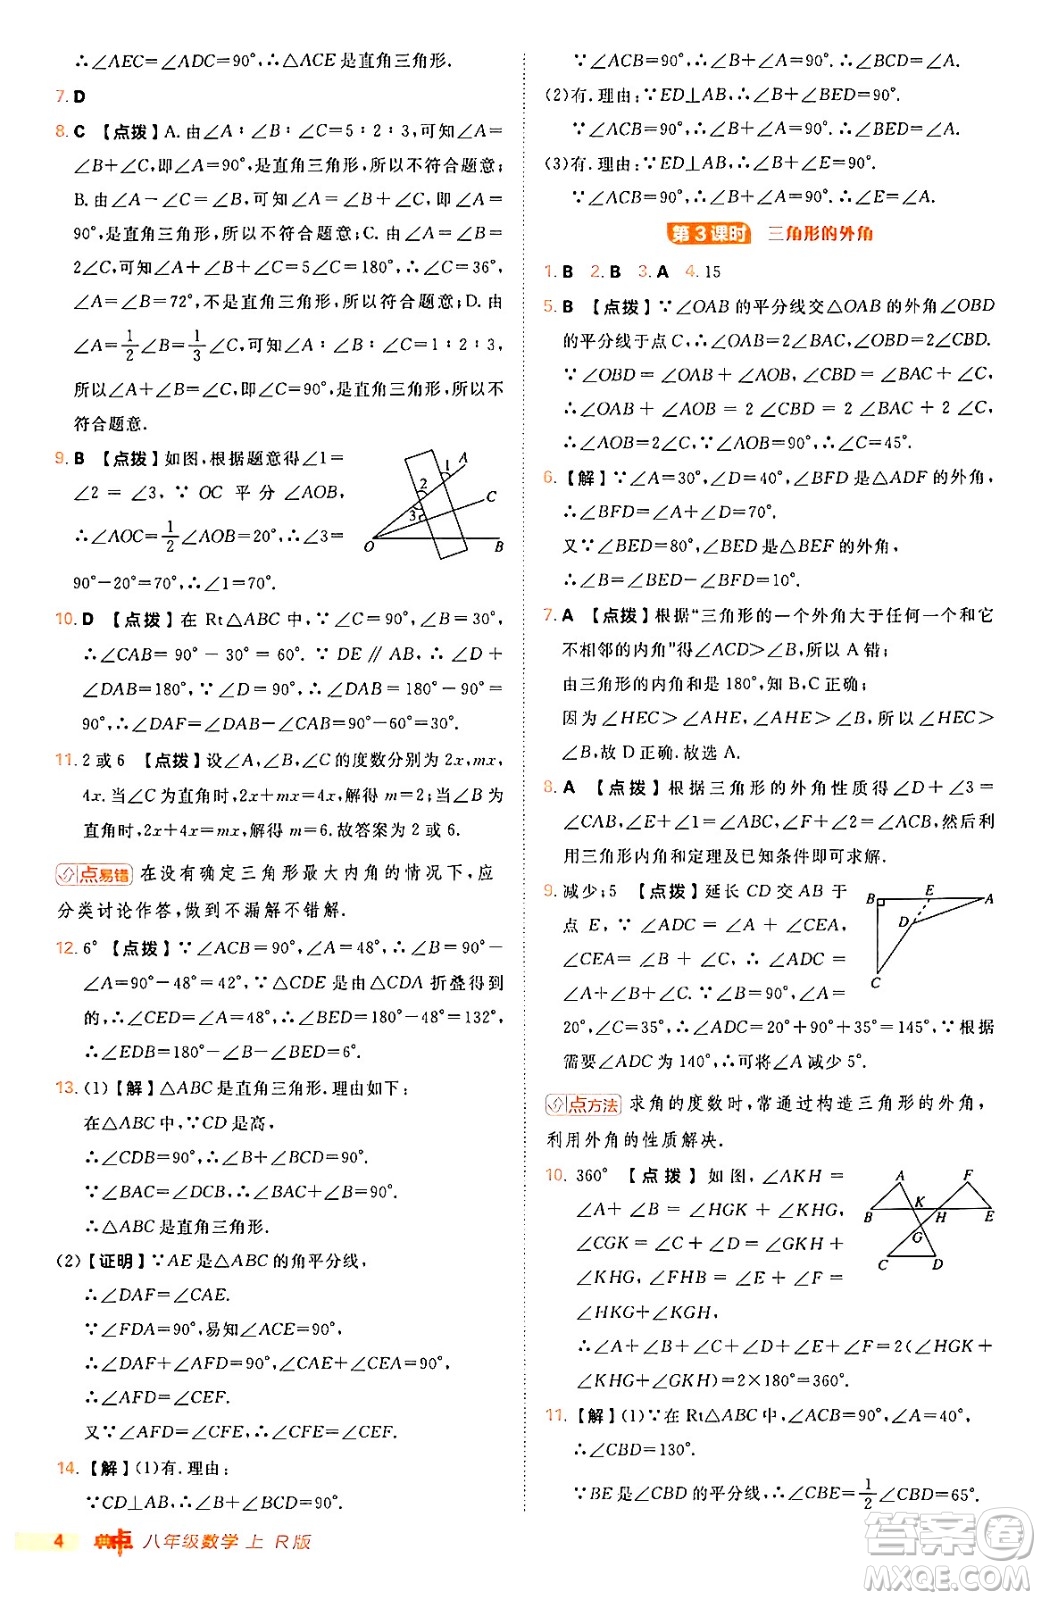 ∴∠AEC=∠ADC=90°,∴△ACE是直角三角形.
7. D
8. C 【点拨】A.由∠A∶∠B∶∠C=5∶2∶3,可知∠A=
∠B+∠C,即∠A=90°,是直角三角形,所以不符合题意;
B.由∠A-∠C=∠B,可知∠A=∠B+∠C,即∠A=
90°,是直角三角形,所以不符合题意;C.由∠A=∠B=
2∠C,可知2∠C+2∠C+∠C=5∠C=180°,∴∠C=36°,
∠A=∠B=72°,不是直角三角形,所以符合题意;D.由
∠A=1/2∠B=1/3∠C,可知∠A∶∠B∶∠C=1∶2∶3,
所以∠A+∠B=∠C,即∠C=90°,是直角三角形,所以不
符合题意.
9. B 【点拨】如图,根据题意得∠1=
∠2=∠3,∵OC平分∠AOB,
∴∠AOC=1/2∠AOB=20°,∴∠3=
90°-20°=70°,∴∠1=70°.
1 A 2 C 3 O B
10. D 【点拨】在Rt△ABC中,∵∠C=90°,∠B=30°,
∴∠CAB=90°-30°=60°.∵DE∥AB,∴∠D+
∠DAB=180°,∵∠D=90°,∴∠DAB=180°-90°=
90°,∴∠DAF=∠DAB-∠CAB=90°-60°=30°.
11. 2或6 【点拨】设∠A,∠B,∠C的度数分别为2x,mx,
4x.当∠C为直角时,2x+mx=4x,解得m=2;当∠B为
直角时,2x+4x=mx,解得m=6.故答案为2或6.
点易错 在没有确定三角形最大内角的情况下,应
分类讨论作答,做到不漏解不错解.
12. 6° 【点拨】∵∠ACB=90°,∠A=48°,∴∠B=90°-
∠A=90°-48°=42°,∵△CDE是由△CDA折叠得到
的,∴∠CED=∠A=48°,∴∠DEB=180°-48°=132°,
∴∠EDB=180°-∠B-∠DEB=6°.
13. (1)【解】△ABC是直角三角形.理由如下:
在△ABC中,∵CD是高,
∴∠CDB=90°,∴∠B+∠BCD=90°.
∵∠ACD=∠B,∴∠ACD+∠BCD=90°.
∴△ABC是直角三角形.
(2)【证明】∵AE是△ABC的角平分线,
∴∠DAF=∠CAE.
∵∠FDA=90°,易知∠ACE=90°,
∴∠DAF+∠AFD=90°,∠CAE+∠CEF=90°.
∴∠AFD=∠CEF.
又∵∠AFD=∠CFE,∴∠CEF=∠CFE.
14. 【解】(1)有.理由:
∵CD⊥AB,∴∠B+∠BCD=90°.
4 典中点 八年级数学 上 R版
∵∠ACB=90°,∴∠B+∠A=90°.∴∠BCD=∠A.
(2)有.理由:∵ED⊥AB,∴∠A+∠BED=90°.
∵∠ACB=90°,∴∠A+∠B=90°.∴∠BED=∠B.
(3)有.理由:∵ED⊥AB,∴∠B+∠E=90°.
∵∠ACB=90°,∴∠A+∠B=90°.∴∠E=∠A.
第3课时 三角形的外角
1. B 2. B 3. A 4. 15
5. B 【点拨】∵∠OAB的平分线交△OAB的外角∠OBD
的平分线于点C,∴∠OAB=2∠BAC,∠OBD=2∠CBD.
∵∠OBD=∠OAB+∠AOB,∠CBD=∠BAC+∠C,
∴∠OAB+∠AOB=2∠CBD=2∠BAC+2∠C,
∴∠AOB=2∠C,∵∠AOB=90°,∴∠C=45°.
6. 【解】∵∠A=30°,∠D=40°,∠BFD是△ADF的外角,
∴∠BFD=∠A+∠D=70°.
又∵∠BED=80°,∠BED是△BEF的外角,
∴∠B=∠BED-∠BFD=10°.
7. A 【点拨】根据“三角形的一个外角大于任何一个和它
不相邻的内角”得∠ACD>∠B,所以A错;
由三角形的内角和是180°,知B,C正确;
因为∠HEC>∠AHE,∠AHE>∠A,所以∠HEC>
∠A,故D正确.故选A.
8. A 【点拨】根据三角形的外角性质得∠D+∠3=
∠CAB,∠1+∠EBF=∠2,∠EBF=∠ABC,然后利
用三角形内角和定理及已知条件即可求解.
9. 减少;5 【点拨】延长CD交AB于
点E,∵∠ADC=∠A+∠CEA,
∠CEA=∠B+∠C,∴∠ADC=
∠A+∠B+∠C.∵∠B=90°,∠A=
20°,∠C=35°,∴∠ADC=20°+90°+35°=145°,∵
需要∠ADC为140°,∴可将∠A减少5°.
B E A D C
点方法 求角的度数时,常通过构造三角形的外角,
利用外角的性质解决.
10. 360° 【点拨】如图,∠AKH=
∠A+∠B=∠HGK+∠KHG,
∠CGK=∠C+∠D=∠GKH+
∠KHG,∠FHB=∠E+∠F=
∠HKG+∠HGK.
∴∠A+∠B+∠C+∠D+∠E+∠F=2(∠HGK+
∠KHG+∠GKH)=2×180°=360°.
A F B K H E G C D
11. 【解】(1)∵在Rt△ABC中,∠ACB=90°,∠A=40°,
∴∠CBD=130°.
∵BE是∠CBD的平分线,∴∠CBE=1/2∠CBD=65°.
答案圈
MXQE.COM